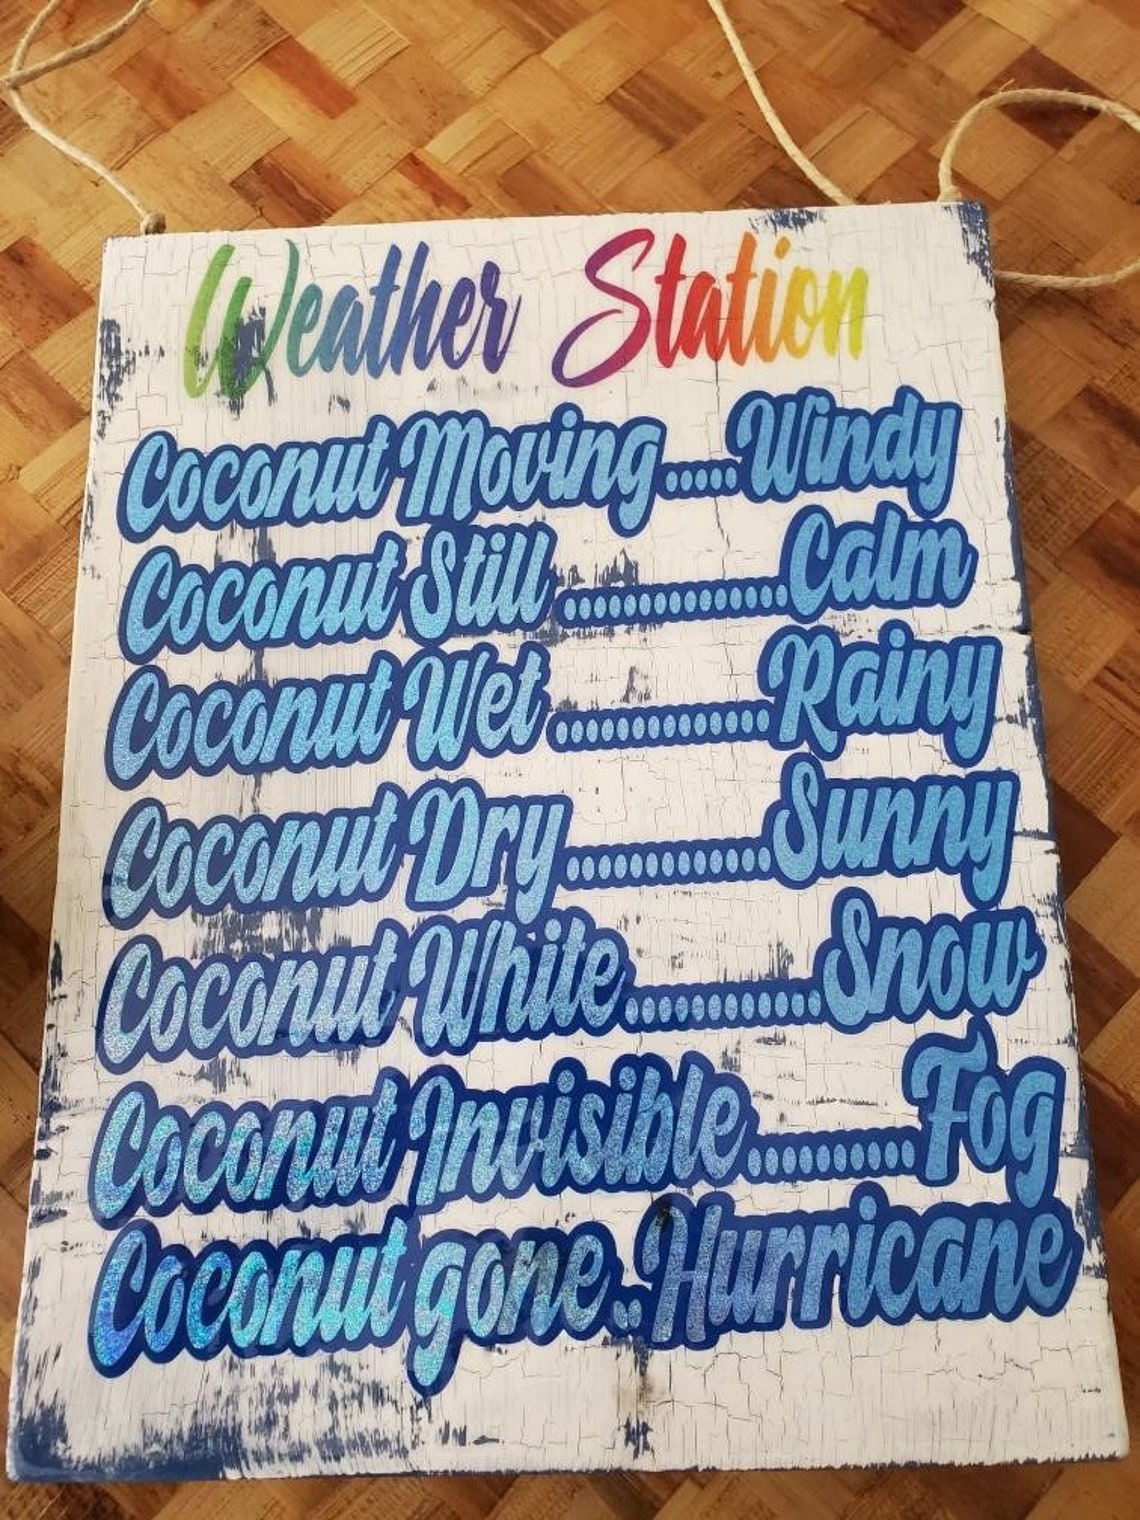 Weather Station
Coconut Moving.....Windy
Coconut Still ...............Calm
Coconut Wet ..............Rainy
Coconut Dry.............Sunny
Coconut White............Snow
Coconut Invisible..........Fog
Coconut gone..Hurricane